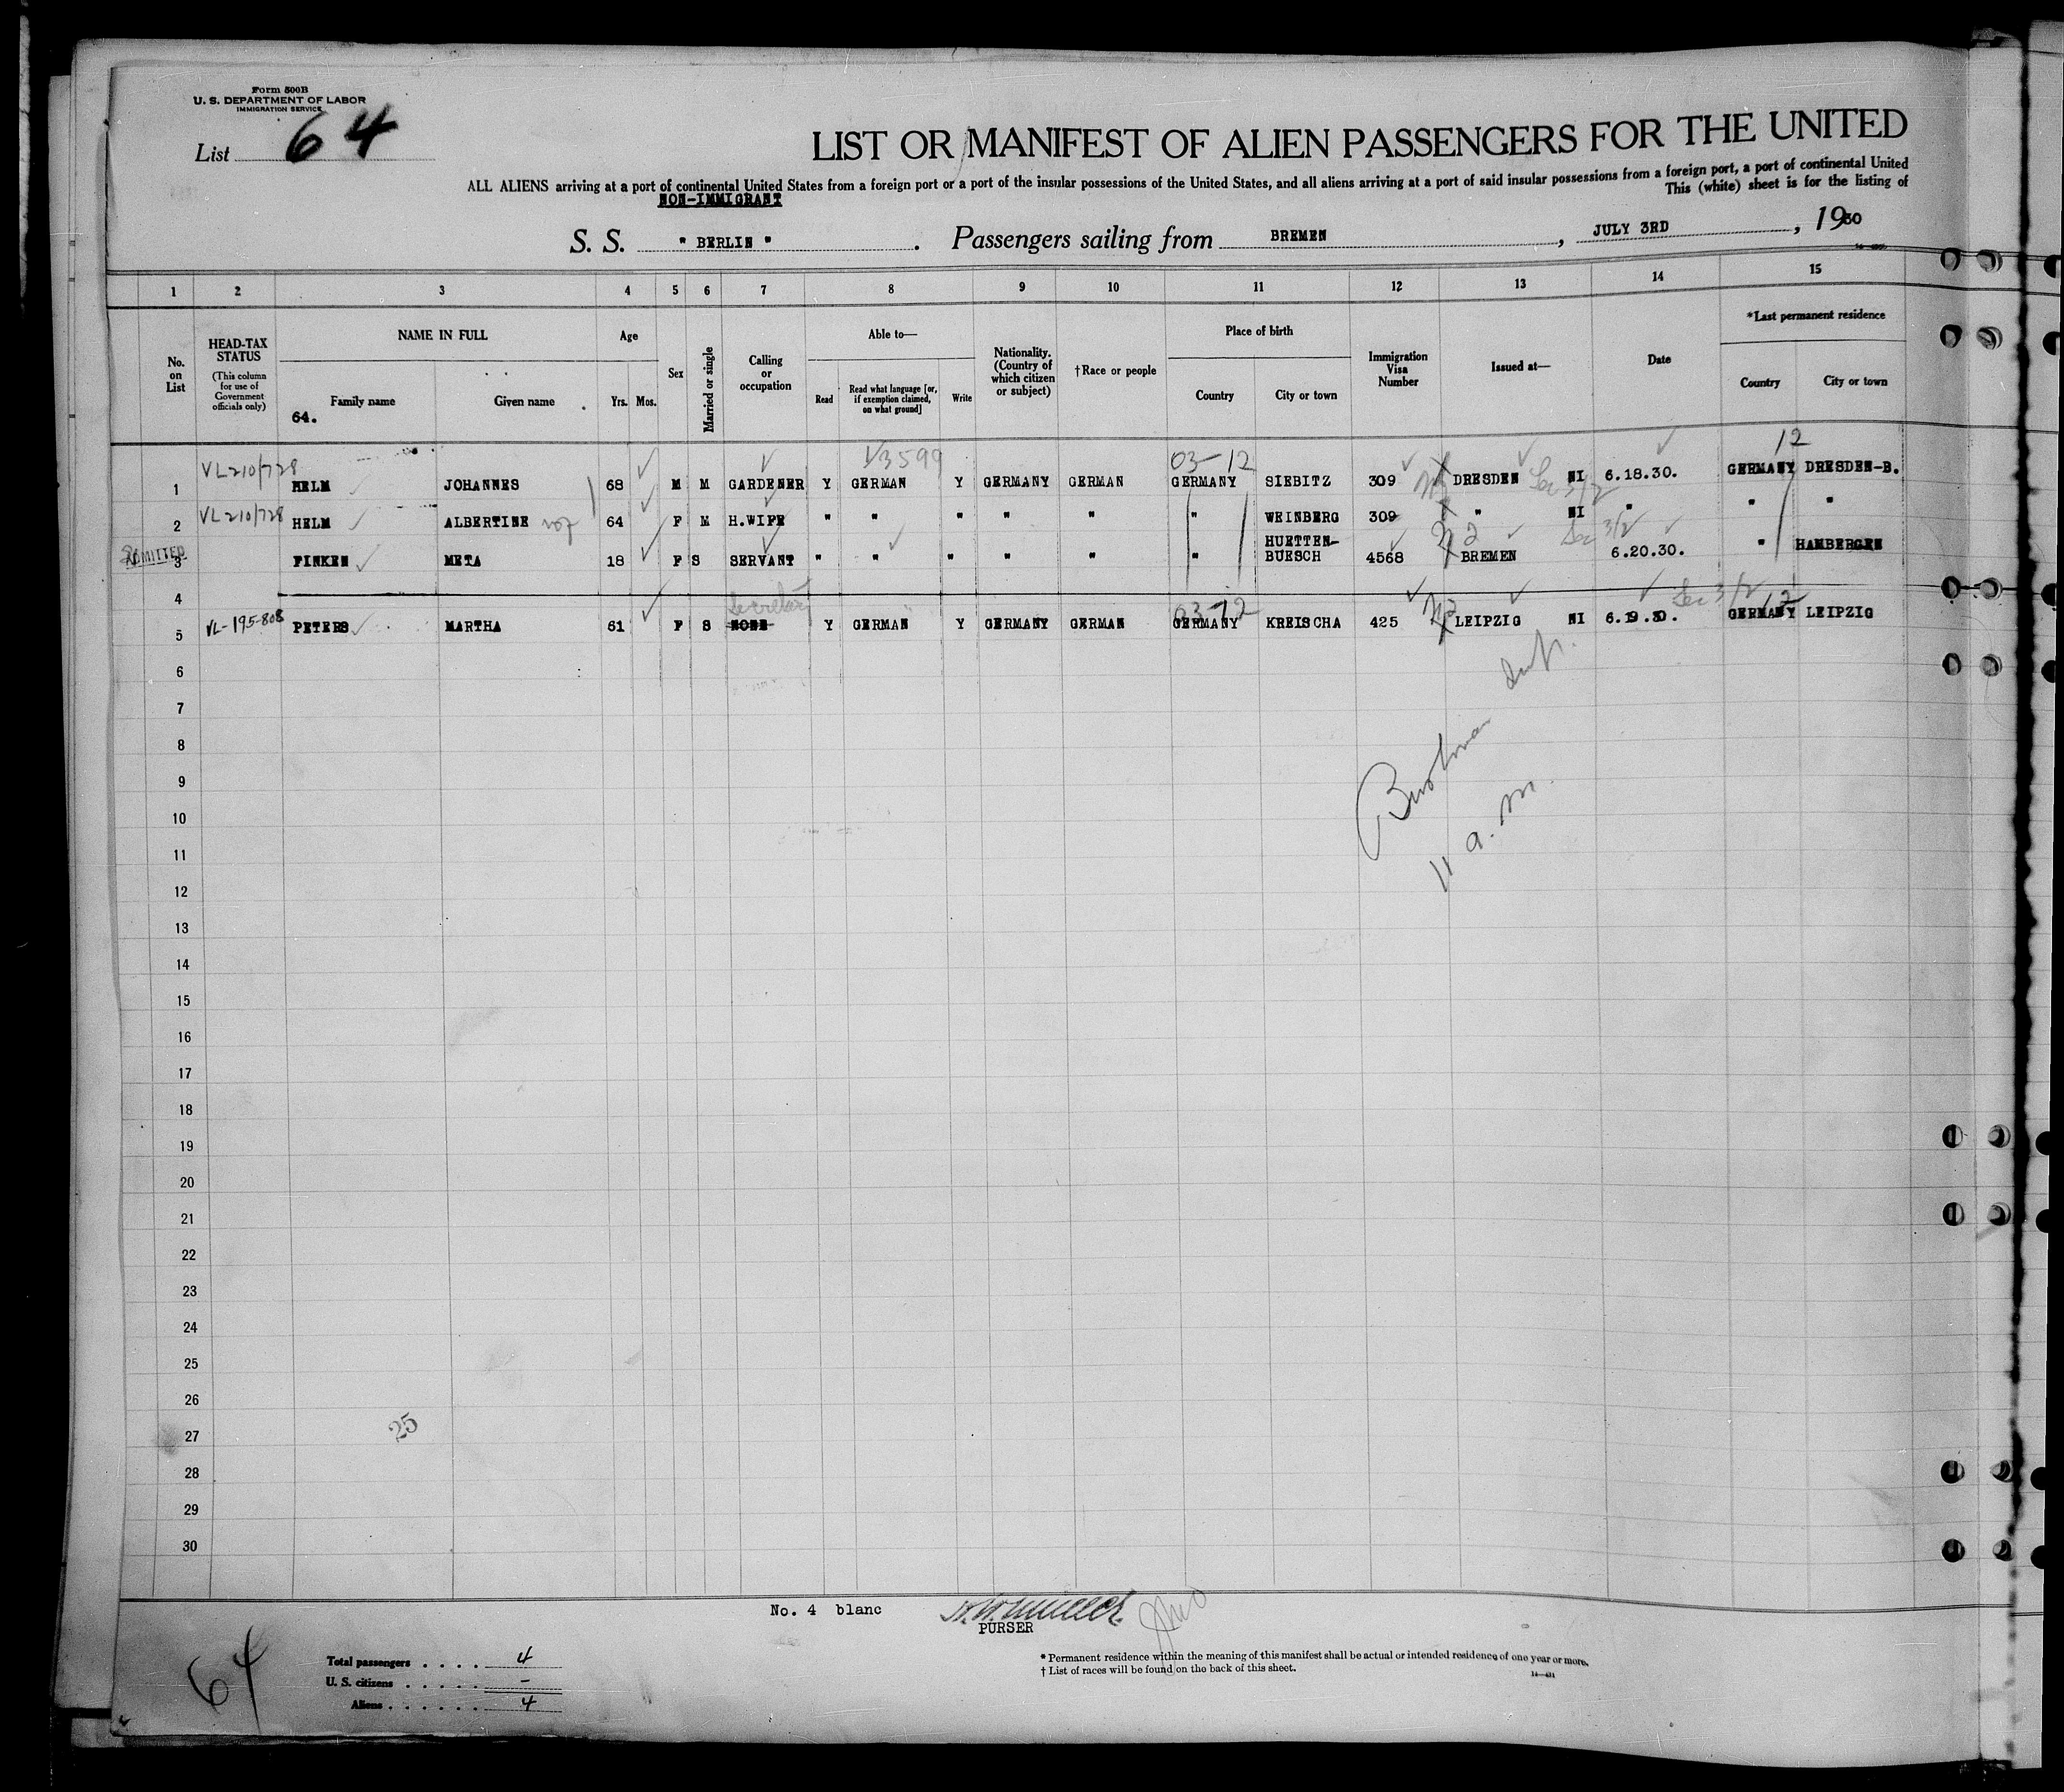 Form 500B
U. S. DEPARTMENT OF LABOR
IMMIGRATION SERVICE
List 64
LIST OR MANIFEST OF ALIEN PASSENGERS FOR THE UNITED
ALL ALIENS arriving at a port of continental United States from a foreign port or a port of the insular possessions of the United States, and all aliens arriving at a port of said insular possessions from a foreign port, a port of continental United
This (white) sheet is for the listing of
NON-IMMIGRANT
S. S. " BERLIN " . Passengers sailing from BREMEN , JULY 3RD , 1930
1 2 3 4 5 6 7 8 9 10 11 12 13 14 15
No. on List
HEAD-TAX STATUS
(This column for use of Government officials only)
NAME IN FULL
Family name
Given name
64.
Age
Yrs. Mos.
Sex
Married or single
Calling or occupation
Able to—
Read
Read what language [or, if exemption claimed, on what ground]
Write
Nationality. (Country of which citizen or subject)
†Race or people
Place of birth
Country
City or town
Immigration Visa Number
Issued at—
Date
*Last permanent residence
Country
City or town
V3599 03-12 12
1 VL210/728 HELM JOHANNES 68 M M GARDENER Y GERMAN Y GERMANY GERMAN GERMANY SIEBITZ 309 DRESDEN NI 6.18.30. GERMANY DRESDEN-B.
Sec 3/2
2 VL210/728 HELM ALBERTINE 64 F M H.WIFE " " " " " " WEINBERG 309 " NI " " "
Sec 3/2
ADMITTED
3 FINKEN META 18 F S SERVANT " " " " " " HUETTEN-BUESCH 4568 BREMEN 6.20.30. " HAMBERGEN
4
Secretary 03-12 Sec 3/2 12
5 VL-195-808 PETERS MARTHA 61 F S NONE Y GERMAN Y GERMANY GERMAN GERMANY KREISCHA 425 LEIPZIG NI 6.19.30. GERMANY LEIPZIG
6
7
8
9
10
11
12
13
14
15
16
17
18
19
20
21
22
23
24
25
26
27
28
29
30
11 a.m.
25
No. 4 blanc
PURSER
64
Total passengers . . . . 4
U. S. citizens . . . . . -
Aliens . . . . . . 4
* Permanent residence within the meaning of this manifest shall be actual or intended residence of one year or more.
† List of races will be found on the back of this sheet.